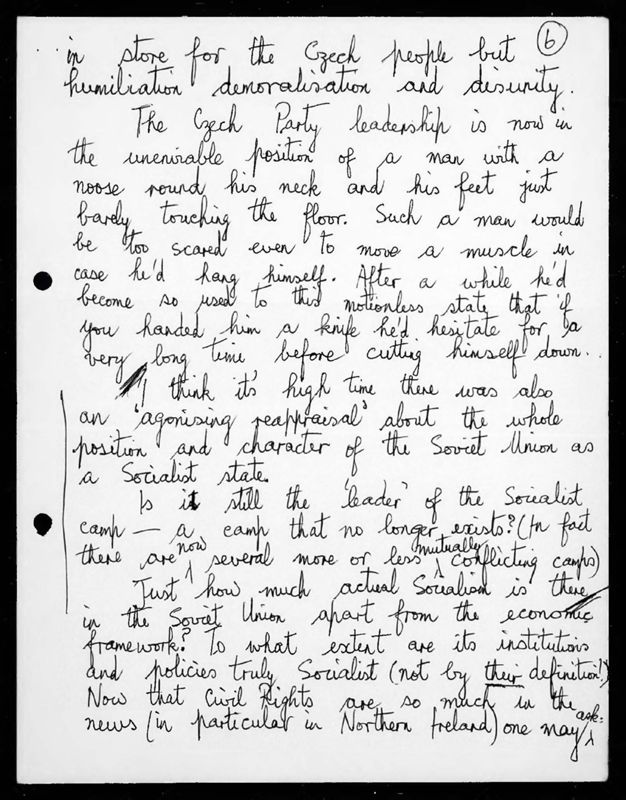 6
in store for the Czech people but
humiliation demoralisation and disunity.
The Czech Party leadership is now in
the unenviable position of a man with a
noose round his neck and his feet just
barely touching the floor. Such a man would
be too scared even to move a muscle in
case he'd hang himself. After a while he'd
become so used to this motionless state that if
you handed him a knife he'd hesitate for a
very long time before cutting himself down.
I think it's high time there was also
an 'agonising reappraisal' about the whole
position and character of the Soviet Union as
a Socialist state.
Is it still the 'leader' of the Socialist
camp — a camp that no longer exists? (In fact
there are now several more or less mutually conflicting camps)
Just how much actual Socialism is there
in the Soviet Union apart from the economic
framework? To what extent are its institutions
and policies truly Socialist (not by their definition!)
Now that Civil Rights are so much in the
news (in particular in Northern Ireland) one may ask: